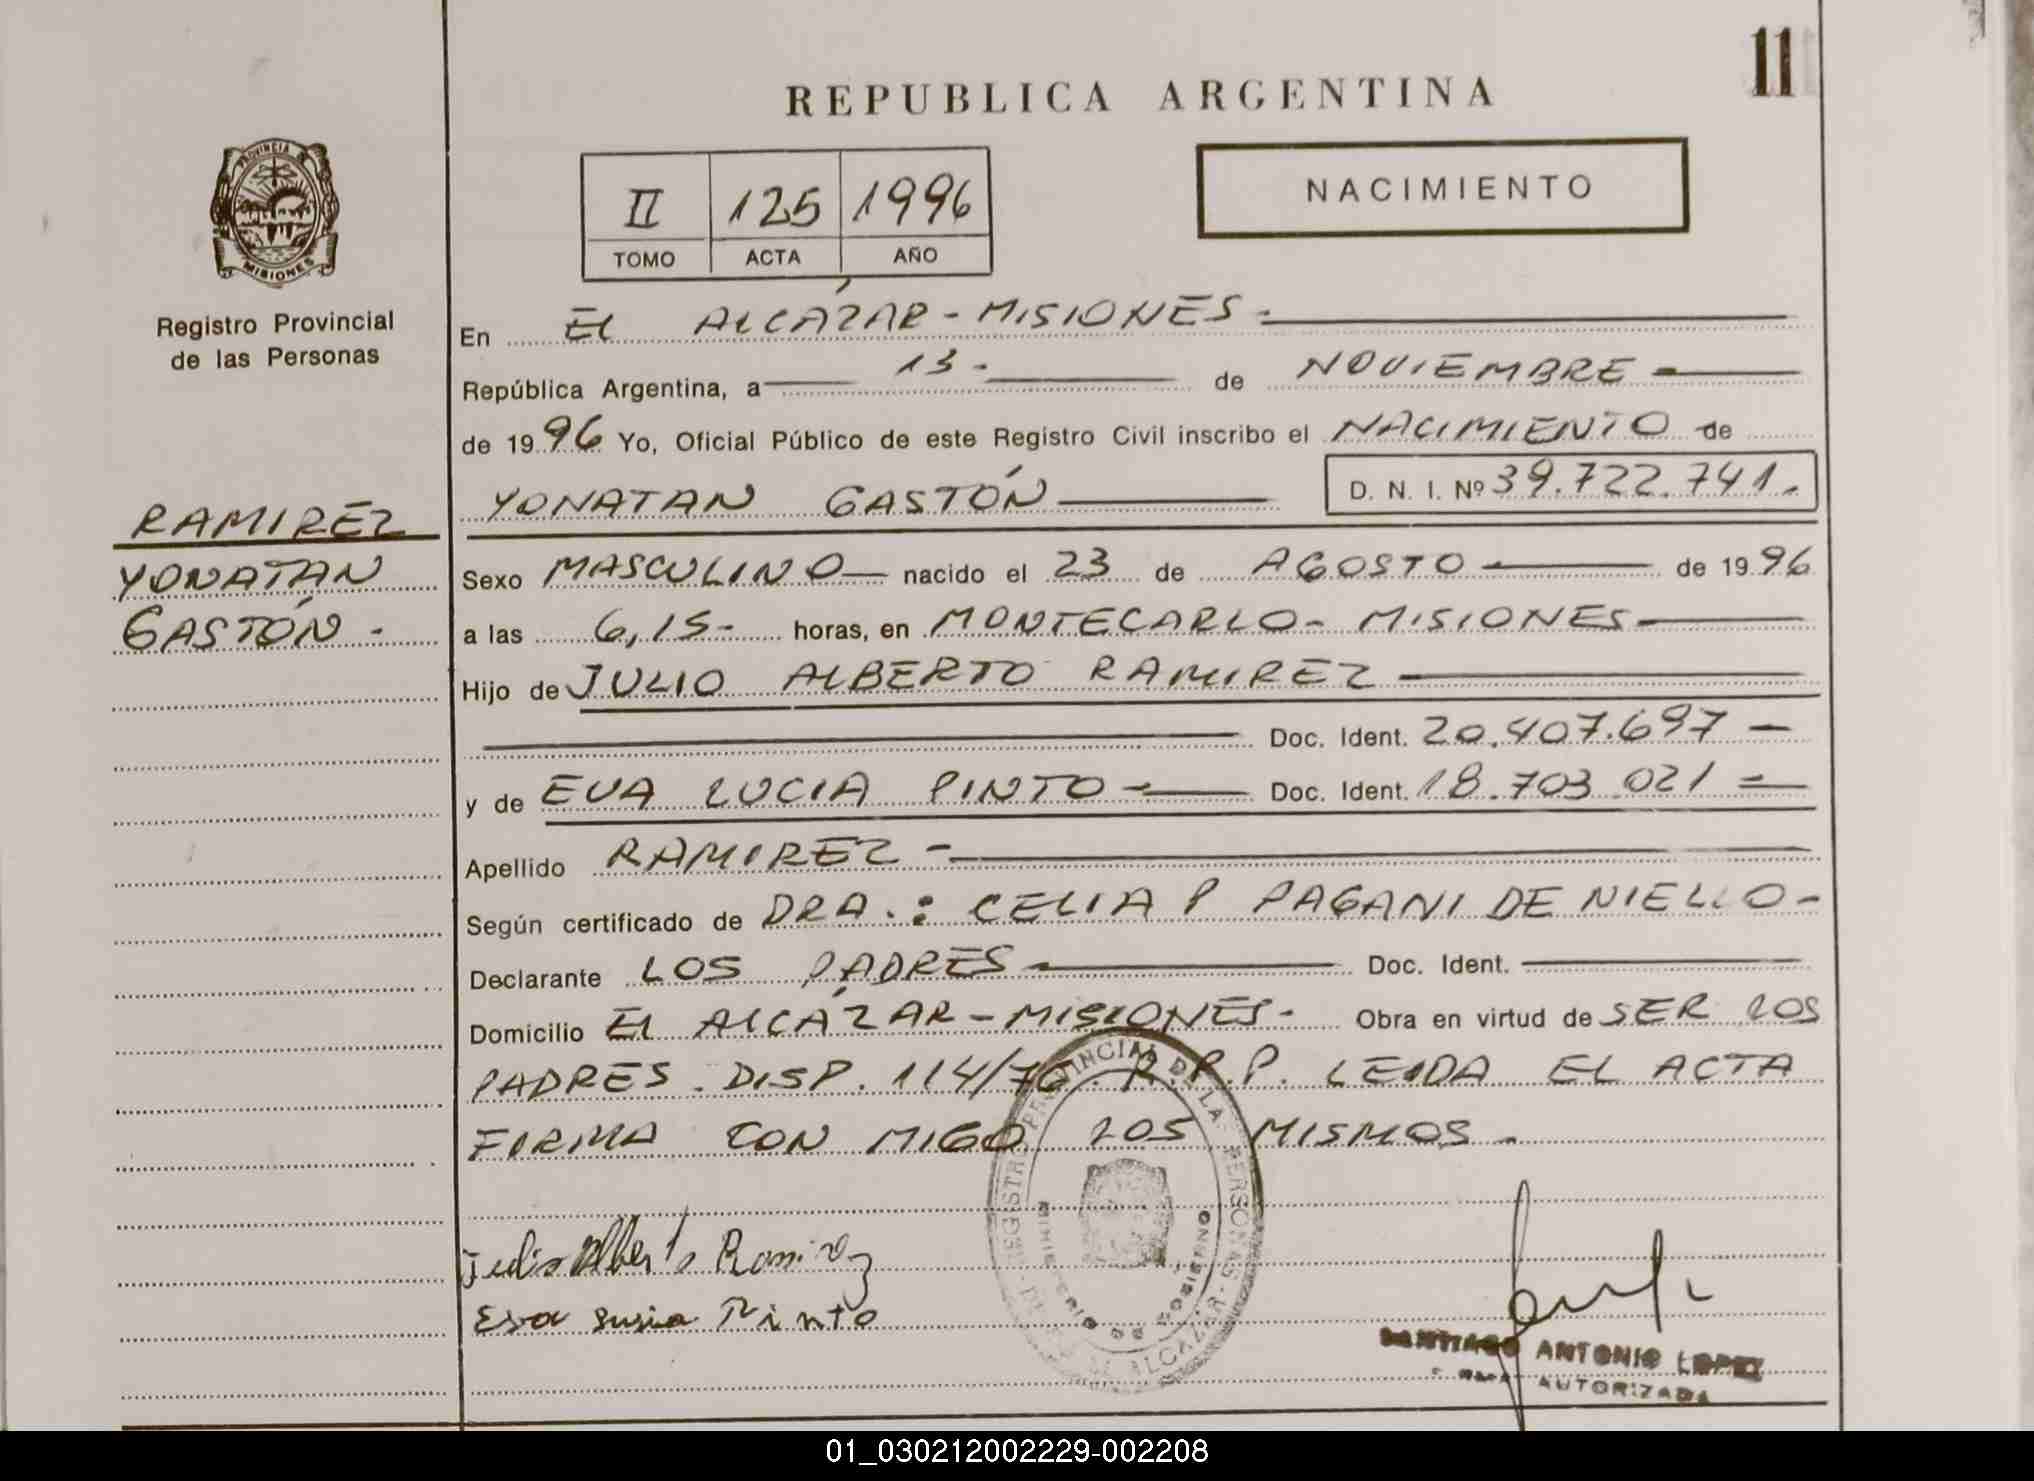 11
REPUBLICA ARGENTINA
PROVINCIA DE
MISIONES
II 125 1996
TOMO ACTA AÑO
NACIMIENTO
Registro Provincial
de las Personas
RAMIREZ
YONATAN
GASTÓN -
En EL ALCÁZAR - MISIONES -
República Argentina, a 13- de NOVIEMBRE -
de 1996 Yo, Oficial Público de este Registro Civil inscribo el NACIMIENTO de
YONATAN GASTÓN D. N. I. Nº 39.722.741.
Sexo MASCULINO nacido el 23 de AGOSTO de 1996
a las 6,15- horas, en MONTECARLO - MISIONES -
Hijo de JULIO ALBERTO RAMIREZ
Doc. Ident. 20.407.697 -
y de EVA LUCIA PINTO - Doc. Ident. 18.703.021 =
Apellido RAMIREZ -
Según certificado de DRA.: CELIA P PAGANI DE NIELLO -
Declarante LOS PADRES - Doc. Ident.
Domicilio EL ALCÁZAR - MISIONES - Obra en virtud de SER LOS
PADRES. DISP. 114/76. R.R.P. LEIDA EL ACTA
FIRMA CON MIGO LOS MISMOS -
REGISTRO PROVINCIAL DE LAS PERSONAS
MINISTERIO DE GOBIERNO
ALCAZAR
Julio Alberto Ramirez
Eva Pinto
SANTIAGO ANTONIO LOPEZ
AUTORIZADA
01_030212002229-002208